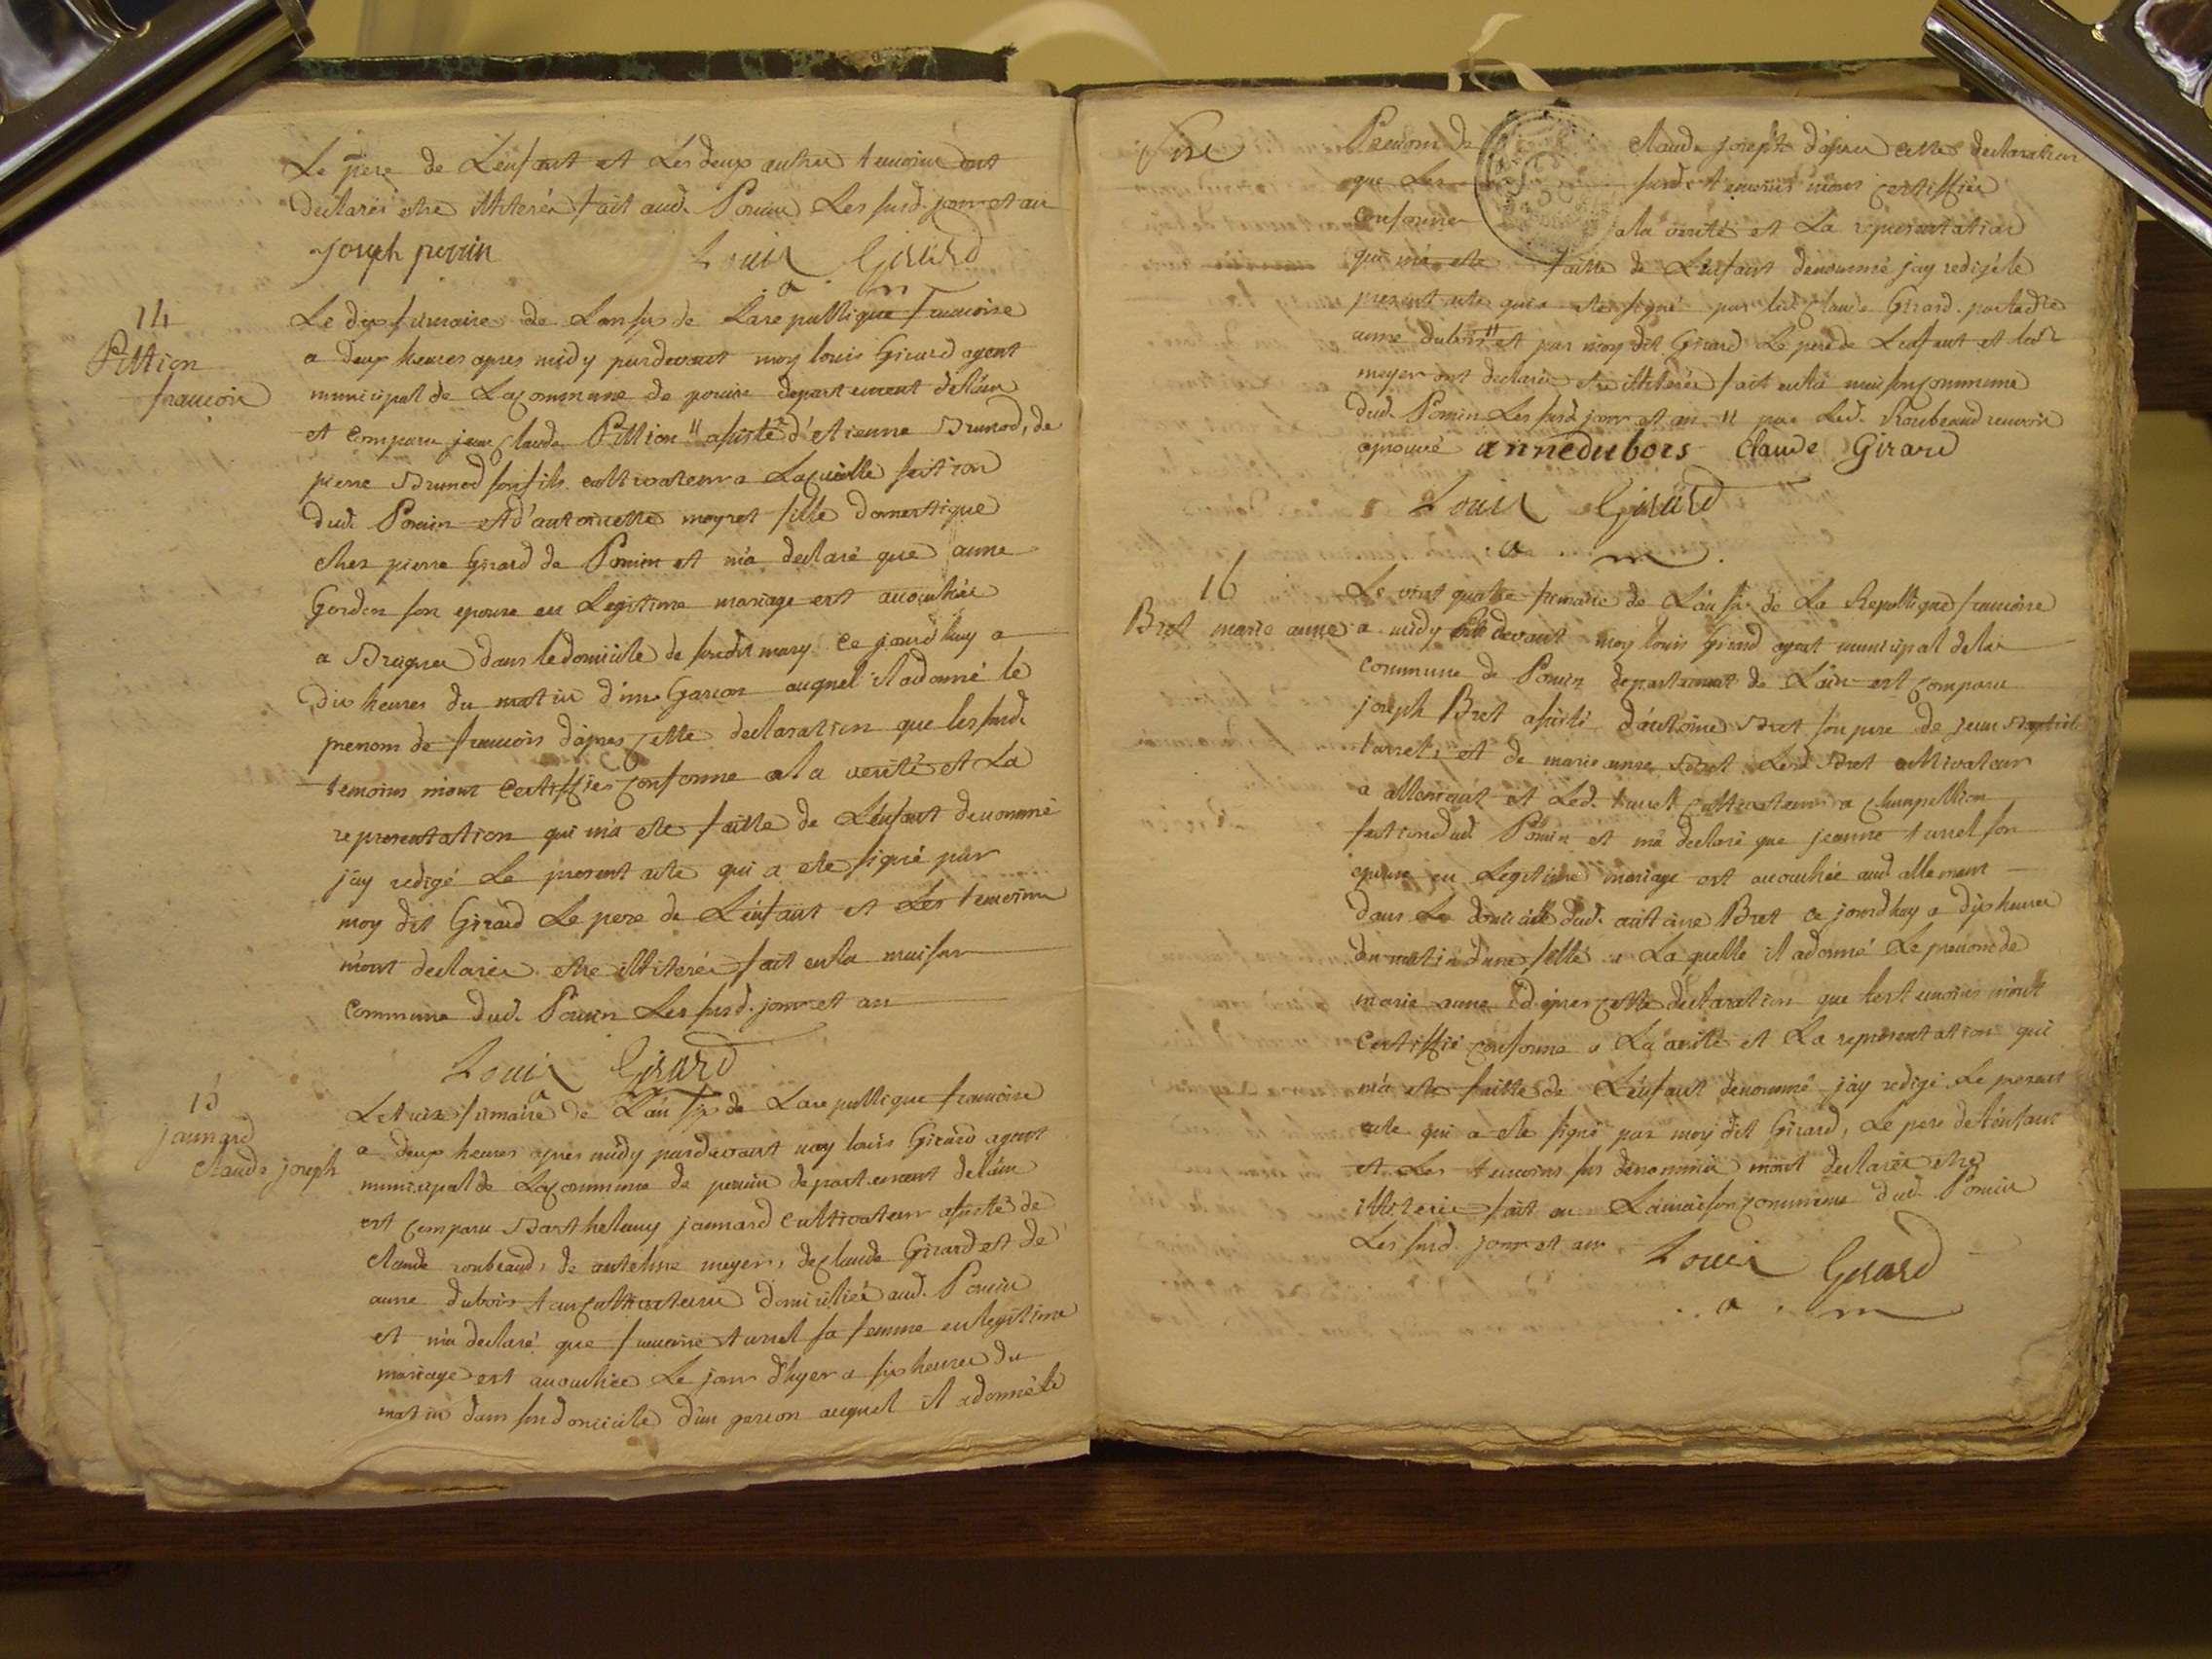 Le pere de L'enfant et Les deux autres temoins ont
declarés etre illiterés fait aud. Poncin Les susd. jour et an
joseph perrin Louis Girard
a. m
14
Pittion
francois
Le dix frimaire de Lan six de La republique francoise
a deux heures apres midy pardevant moy louis Girard agent
municipal de La commune de poncin departement de l'ain
et comparu jean Claude Pittion " assisté d'etienne Brunod, de
pierre Brunod son fils cultivateurs a La section
dud. Poncin et d'antoinette moyret fille domestique
chez pierre Girard de Poncin et m'a declaré que anne
Gerdon son epouse en Legitime mariage est accouchée
a dans le domicile de susdit mary ce jourd'huy a
dix heures du matin d'un Garcon auquel il a donné le
prenom de francois d'apres cette declaration que les susd.
temoins m'ont certiffiés conforme a la verité et La
representation qui m'a eté faitte de L'enfant denommé
j'ay redigé Le present acte qui a eté signé par
moy dit Girard Le pere de L'enfant et Les temoins
m'ont declarés etre illiterés fait en la maison
commune dud. Poncin Les susd. jour et an
Louis Girard
a m
15
jaunard
claude joseph
Le treize frimaire de L'an six de La republique francoise
a deux heures apres midy pardevant moy louis Girard agent
municipal de La commune de poncin departement de l'ain
est comparu Barthelemy jaunard cultivateur assisté de
Claude roubeaud, de anthelme meyer, de claude Girard et de
anne dubois tous cultivateurs domiciliés aud. Poncin
et m'a declaré que francoise turrel sa femme en legitime
mariage est accouchée Le jour d'hyer a six heures du
matin dans son domicile d'un garcon auquel il a donné le
Prenom de claude joseph d'apres cette declaration
que Les susd. temoins m'ont certiffiés
conforme a la verité et La representation
qui m'a eté faitte de L'enfant denommé j'ay redigé le
present acte qui a eté signé par led. Claude Girard par ladte
anne dubois " et par moy dit Girard Le pere de L'enfant et led.
meyer ont declarés etre illiterés fait en la maison commune
dud. Poncin Les susd. jour et an " par Led. Roubeaud renvoi
aprouvé annedubois Claude Girard
Louis Girard
. a . m .
16
Bret marie anne
Le vint quatre frimaire de L'an six de La Republique francoise
a midy pardevant moy louis Girard agent municipal de la
commune de Poncin departement de L'ain est comparu
joseph Bret assisté d'antoine Bret son pere de jean Baptiste
turrel, et de marie anne Bret Lesd. Bret cultivateurs
a allement et Led. turrel cultivateur a champeillon
section dud. Poncin et m'a declaré que jeanne turrel son
epouse en Legitime mariage est accouchée aud. allement
dans Le domicile dud. antoine Bret ce jourd'huy a dix heures
du matin d'une fille a Laquelle il a donné Le prenom de
marie anne d'apres cette declaration que les temoins m'ont
certiffié conforme a La verité et La representation qui
m'a eté faitte de L'enfant denommé j'ay redigé Le present
acte qui a eté signé par moy dit Girard, Le pere de l'enfant
et Les temoins sus denommés m'ont declarés etre
illiterés fait en La maison commune dud. Poncin
Les susd. jour et an Louis Girard
. a . m